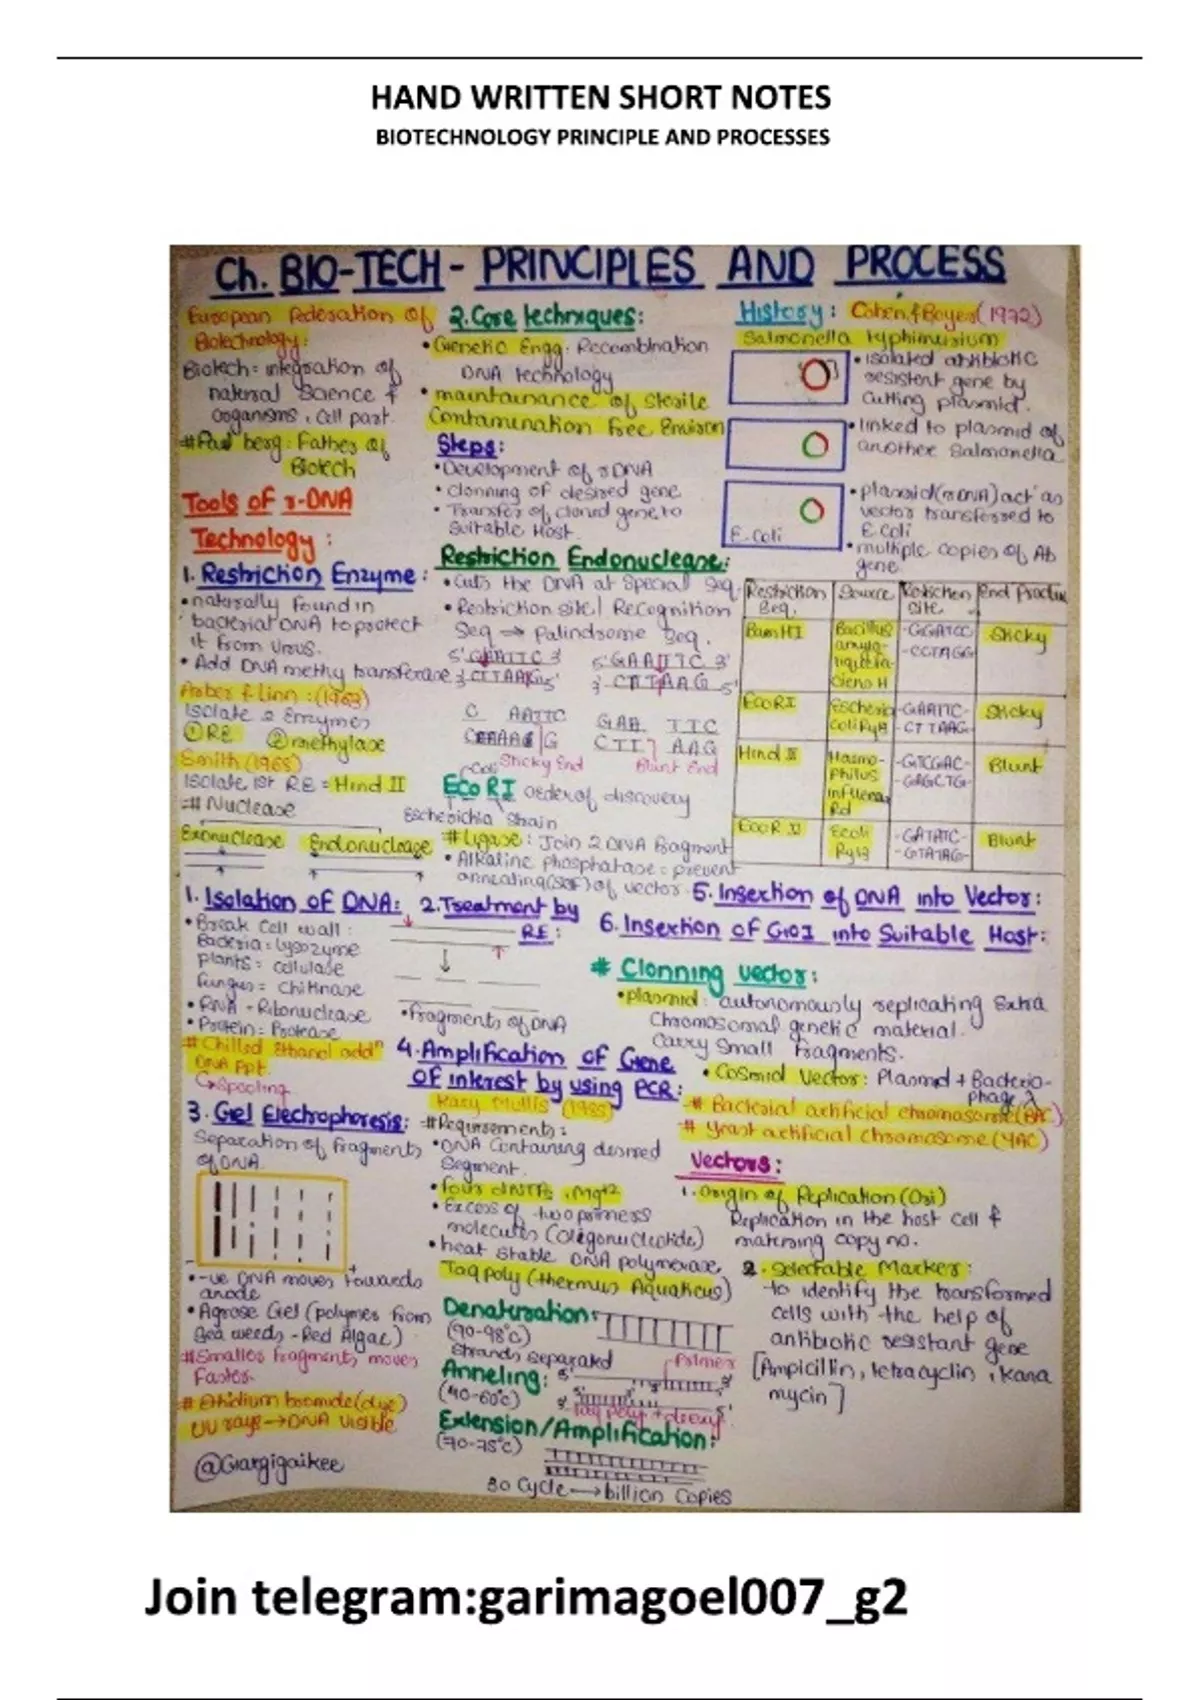 HAND WRITTEN SHORT NOTES
BIOTECHNOLOGY PRINCIPLE AND PROCESSES
Ch. BIO-TECH - PRINCIPLES AND PROCESS
European Federation of
Biotechnology:
Biotech = integration of
natural Science &
organisms, cell part.
#Paul berg: Father of
Biotech
Tools of r-DNA
Technology:
1. Restriction Enzyme:
• naturally found in
bacterial DNA to protect
it from virus.
• Add DNA methy transferase
Arber & Linn: (1963)
Isolate 2 Enzymes
① RE ② methylase
Smith (1968)
Isolate 1st RE = Hind II
=# Nuclease
Exonuclease Endonuclease
2. Core techniques:
• Genetic Engg: Recombination
DNA technology
• maintainance of sterile
Contamination free Environ
Steps:
• Development of rDNA
• Clonning of desired gene
• Transfer of cloned gene to
Suitable Host.
Restriction Endonuclease:
• Cuts the DNA at special seq.
• Restriction site/ Recognition
Seq → Palindrome Seq.
5' GAATTC 3' 5' GAATTC 3'
3' CTTAAG 5' 3' CTTAAG 5'
AATTC GAA TTC
G CTT AAG
Sticky End Blunt End
Coli
ECO RI order of discovery
Escherichia strain
# Ligase: Join 2 DNA fragment
• Alkaline phosphatase = prevent
annealing of vector
History: Cohen & Boyer (1972)
Salmonella typhimurium
• isolated antibiotic
resistent gene by
cutting plasmid.
• linked to plasmid of
another Salmonella
E. Coli
• plasmid (rDNA) act as
vector transferred to
E. Coli
• multiple copies of Ab
gene.
Restriction Seq. Source Restriction site End Product
BamHI Bacillus amyloliquefaciens H -GGATCC- -CCTAGG- Sticky
EcoRI Escherichia coli Ry13 -GAATTC- -CTTAAG- Sticky
Hind II Haemophilus influenza Rd -GTCGAC- -CAGCTG- Blunt
EcoR V Ecoli Ry13 -GATATC- -GTATAG- Blunt
1. Isolation of DNA:
• Break Cell wall:
Bacteria = Lysozyme
plants = cellulase
fungus = Chitinase
• RNA - Ribonuclease
• Protein = Protease
# Chilled Ethanol addn
DNA ppt.
↳ Spooling
2. Treatment by
RE:
• Fragments of DNA
3. Gel Electrophoresis:
Separation of fragments
of DNA.
- +
• -ve DNA moves towards
anode
• Agrose Gel (polymer from
sea weeds - Red Algae)
#Smaller fragments moves
faster.
# Ethidium bromide (dye)
UV rays → DNA visible
@Gargigaikee
4. Amplification of Gene
of interest by using PCR:
Kary Mullis (1985)
#Requirements:
• DNA Containing desired
Segment.
• four dNTPs, Mg+2
• Excess of two primers
molecules (oligonucleotide)
• heat stable DNA polymerase
Taq poly (thermus Aquaticus)
Denaturation:
(90-98°C)
Strands separated
Primer
Anneling:
(40-60°C)
Taq poly + deoxy
Extension/Amplification:
(70-75°C)
30 Cycle → billion Copies
5. Insertion of DNA into Vector:
6. Insertion of GOI into Suitable Host:
# Clonning vector:
• plasmid: autonomously replicating Extra
Chromosomal genetic material.
Carry small fragments.
• Cosmid Vector: Plasmid + Bacterio-
phage λ
# Bacterial artificial chromosome (BAC)
# Yeast artificial chromosome (YAC)
Vectors:
1. Origin of Replication (Ori)
Replication in the host cell &
matching copy no.
2. Selectable Marker:
to identify the transformed
cells with the help of
antibiotic resistant gene
[Ampicillin, tetracyclin, kana
mycin]
Join telegram:garimagoel007_g2